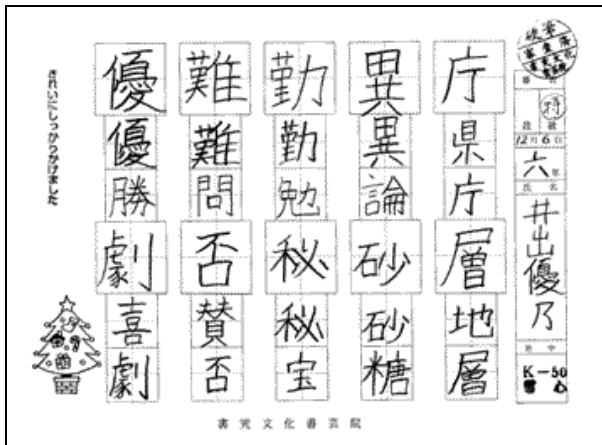 特
段 級
12月6日
六年
氏名
井出優乃
K-50
庁
県庁
層
地層
異
異論
砂
砂糖
勤
勤勉
秘
秘宝
難
難問
否
賛否
優
優勝
劇
喜劇
きれいにしっかりかけました
書究文化書芸院